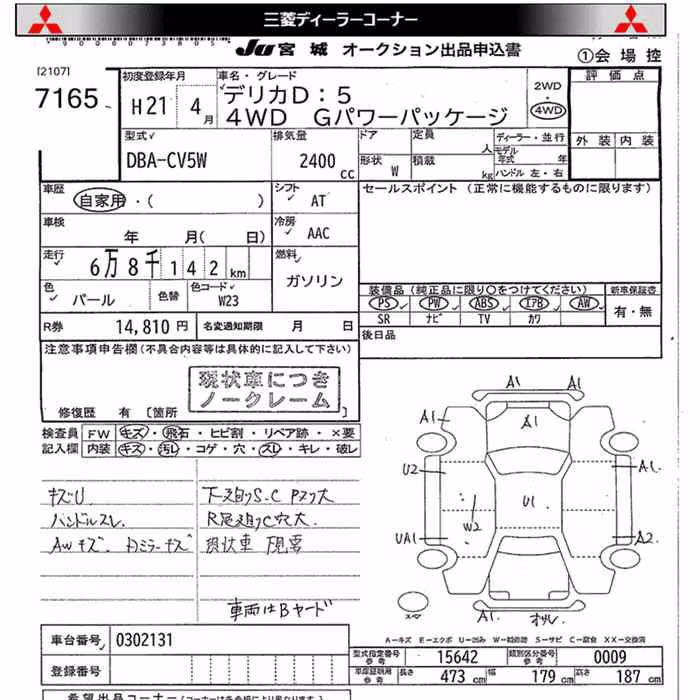 三菱ディーラーコーナー
JU 宮城 オークション出品申込書
①会場控
[2107]
7165
初度登録年月
H21 4月
車名・グレード
デリカD:5
4WD Gパワーパッケージ
2WD
・
4WD
評価点
外装 内装
型式
DBA-CV5W
排気量
2400cc
ドア 定員 人
ディーラー・並行
形状 W 積載 kg
モデル年式 年
ハンドル 左・右
車歴
自家用・( )
シフト AT
セールスポイント (正常に機能するものに限ります)
車検
年 月( 日)
冷房 AAC
走行
6万8千142km
燃料
ガソリン
色 パール
色替
色コード W23
装備品(純正品に限り○をつけてください)
新車保証書
PS PW ABS エアB AW
有・無
SR ナビ TV カワ
R券 14,810円 名変通知期限 月 日
後日品
注意事項申告欄(不具合内容等は具体的に記入して下さい)
現状車につき
ノークレーム
修復歴 有 [箇所
検査員記入欄
FW キズ・飛石・ヒビ割・リペア跡・×要
内装 キズ・汚レ・コゲ・穴・スレ・キレ・破レ
キズU
下廻りS.C Pスク大
ハンドルスレ
R尾廻りC穴大
AWキズ
現状車
車両はBヤード
A1 A1
A1 A1
U2 A1
W2 U1
UA1 A2
A1
A-キズ E-エクボ U-凹み W-補修跡 S-サビ C-腐食 XX-交換済
車台番号 0302131
登録番号
型式指定番号 参考 15642
類別区分番号 参考 0009
車庫証明用 参考 長さ 473 cm 幅 179 cm 高さ 187 cm
希望出品コーナー